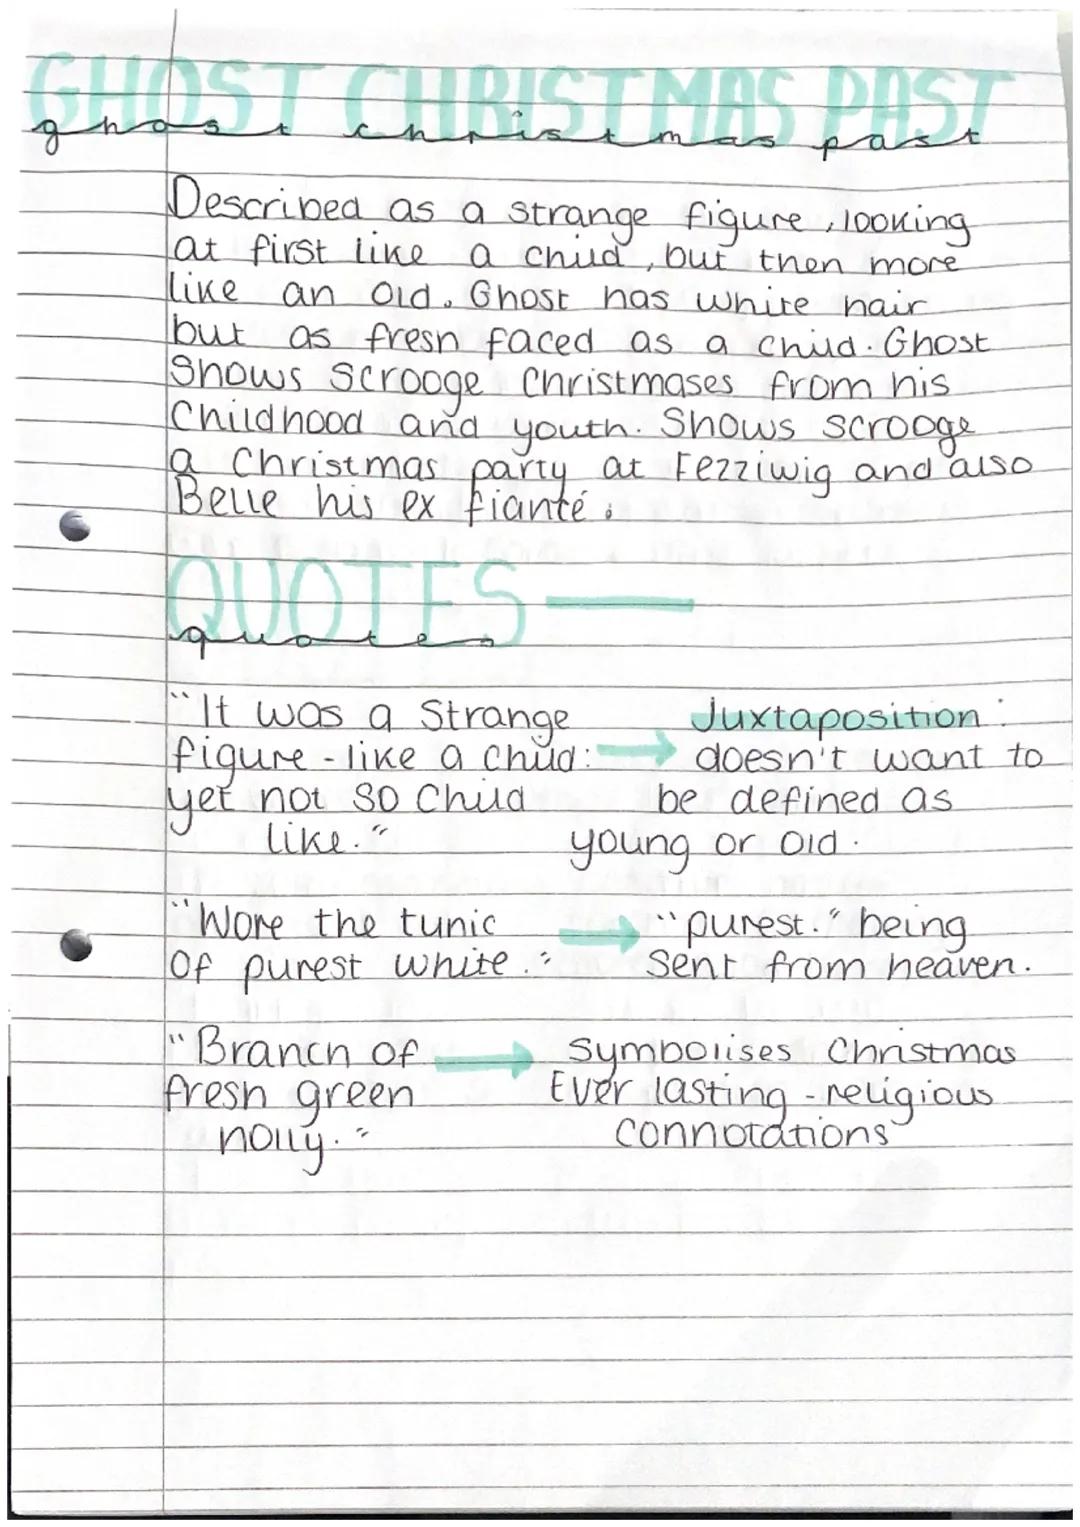 GHOST CHRISTMAS PAST
ghost christmas past
Described as a strange figure, looking
at first like a child, but then more
like an old. Ghost has white hair
but as fresh faced as a child. Ghost
Shows Scrooge Christmases from his
Childhood and youth. Shows Scrooge
a Christmas party at Fezziwig and also
Belle his ex fianté.
QUOTES
quotes
"It was a Strange
figure - like a child:
yet not so Child
like."
Juxtaposition:
doesn't want to
be defined as
young or old.
"Wore the tunic
Of purest white."
"purest." being
Sent from heaven.
"Branch of
fresh green
holly."
Symbolises Christmas
Ever lasting - religious
Connotations